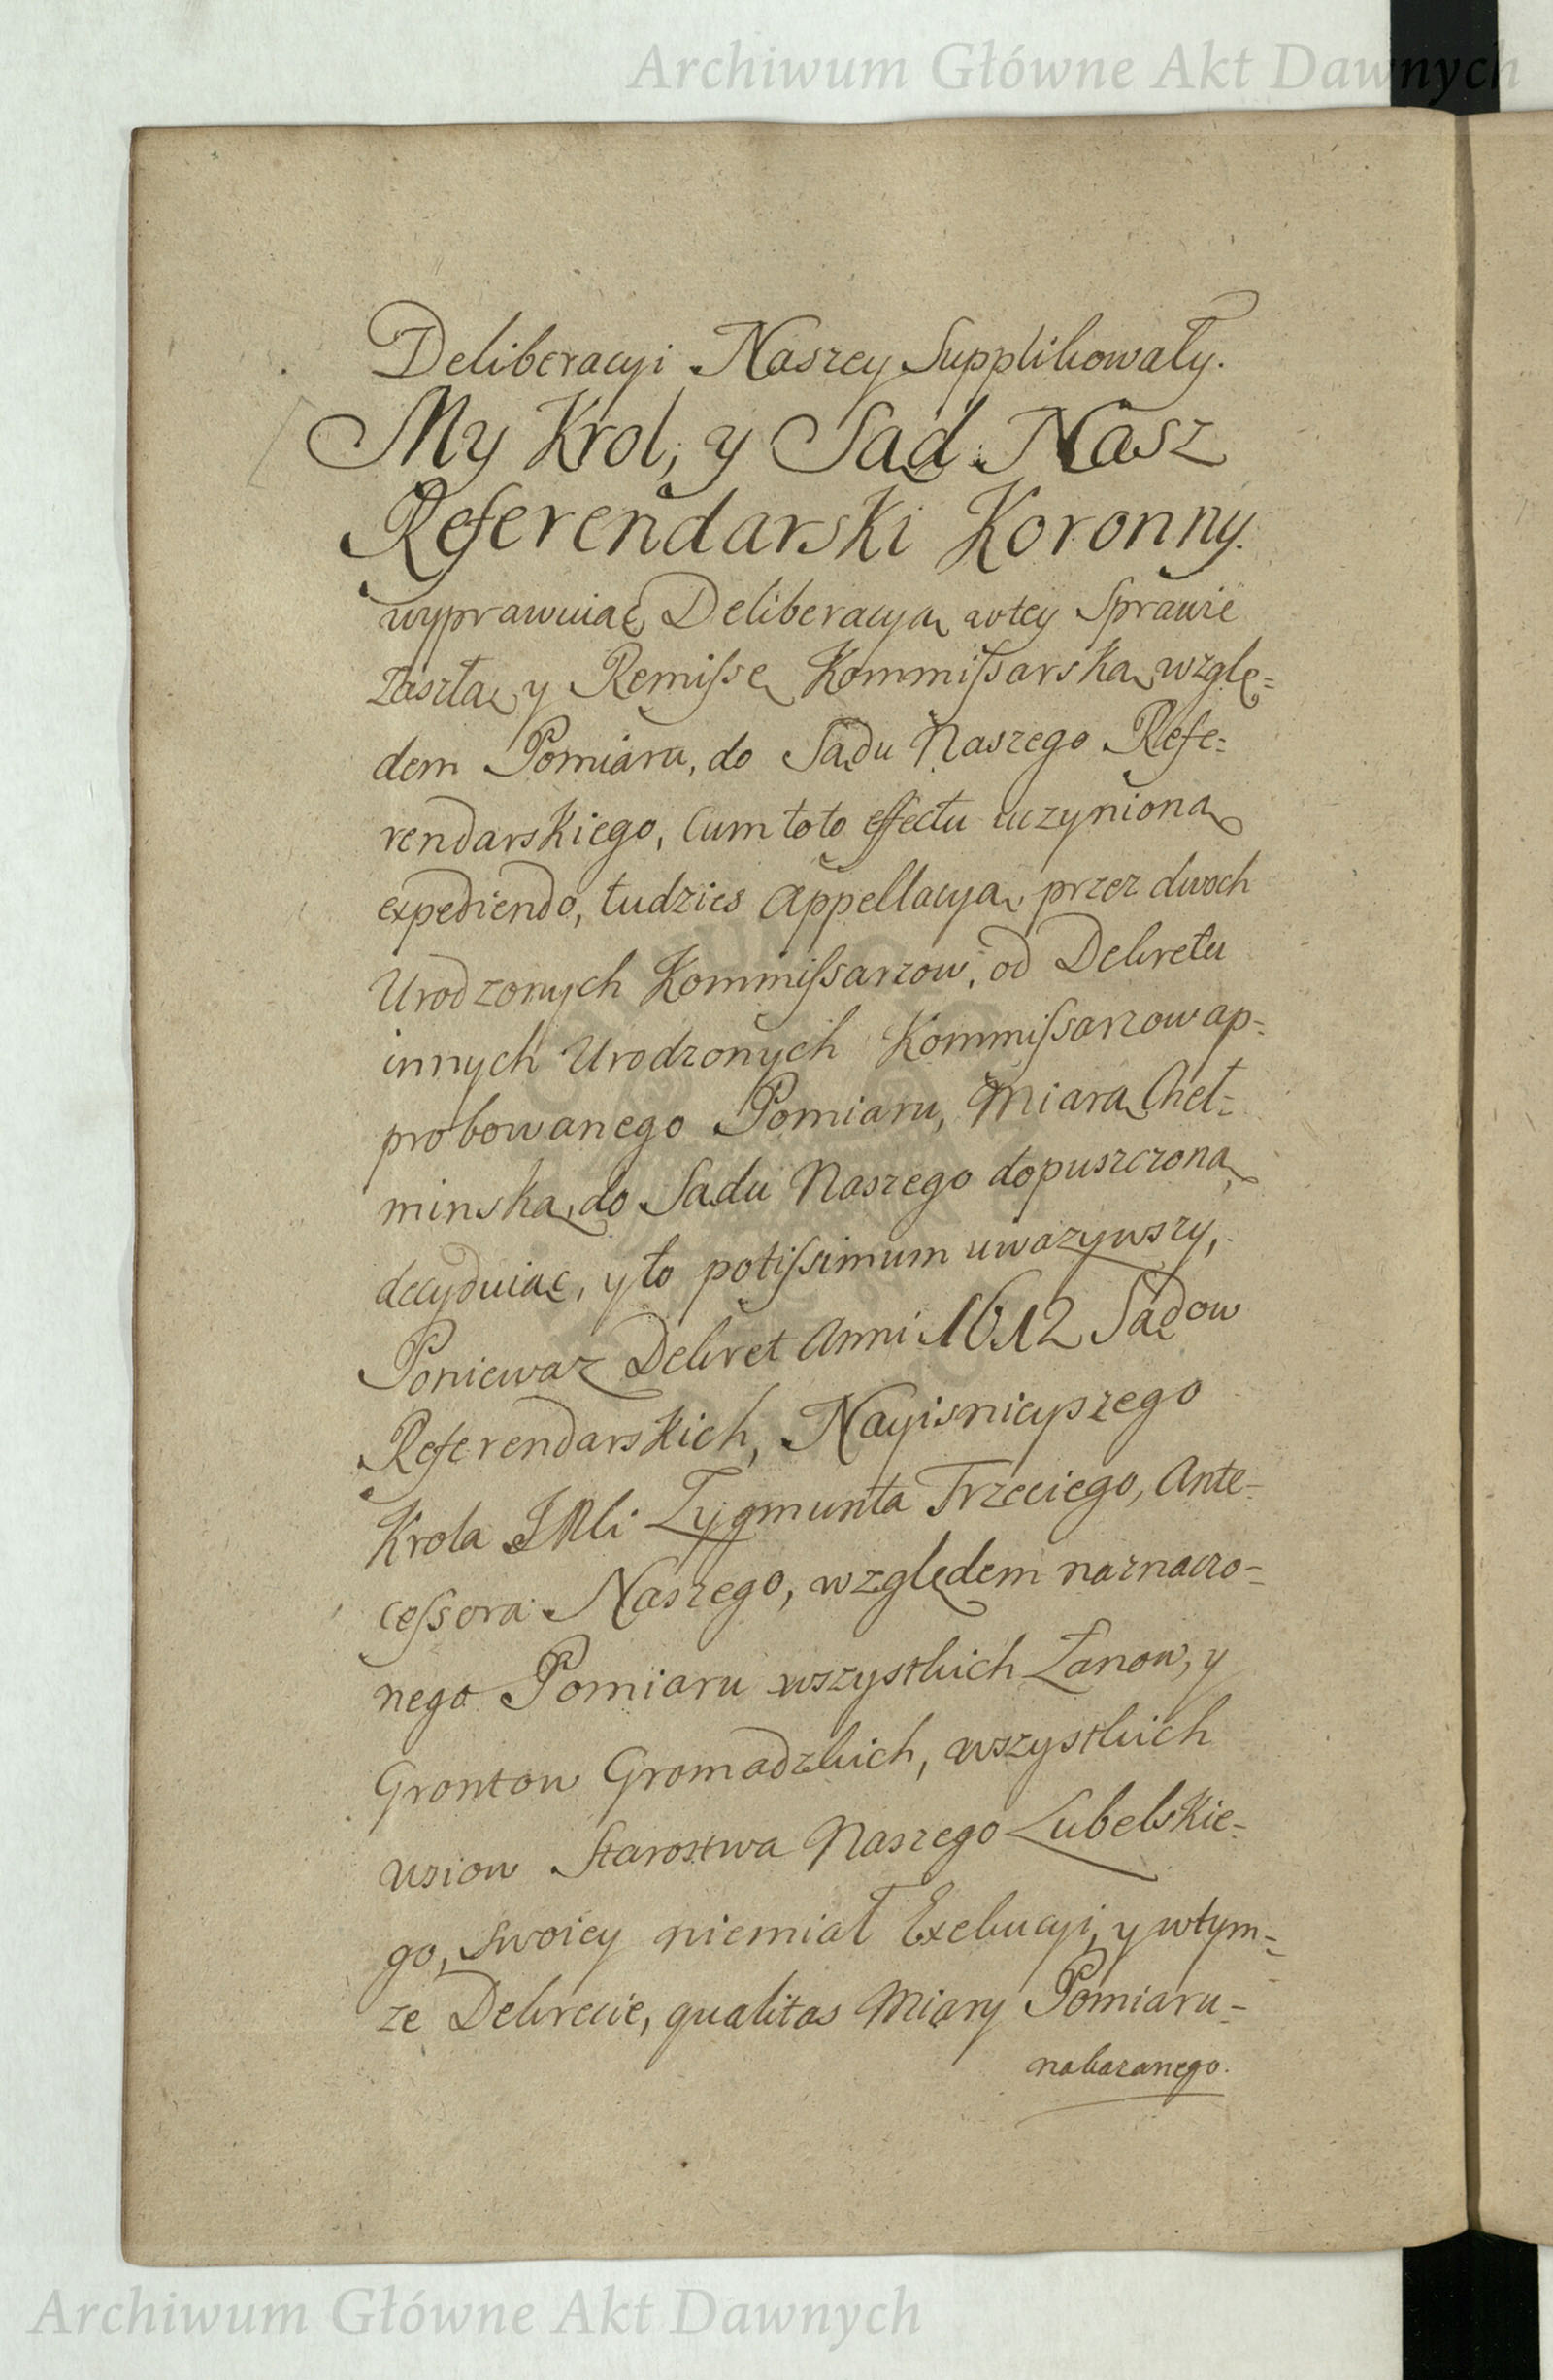 Archiwum Główne Akt Dawnych
Deliberacyi Naszey Supplikowały.
My Krol, y Sąd Nasz
Referendarski Koronny.
wyprawuiąc Deliberacyą wtey Sprawie
zaszłą y Remissę Kommissarską wzglę=
dem Pomiaru, do Sądu Naszego Refe=
rendarskiego, Cum toto effectu uczynioną
expediendo, tudzies Appellacyą przez dwoch
Urodzonych Kommissarzow, od Dekretu
innych Urodzonych Kommissarzow ap=
probowanego Pomiaru, Miarą Cheł=
minską, do Sądu Naszego dopuszczoną
decyduiąc, y to potissimum uwazywszy,
Poniewaz Dekret Anni 1612 Sądow
Referendarskich, Nayisnieyszego
Krola JMci Zygmunta Trzeciego, Ante=
cessora Naszego, względem naznaczo=
nego Pomiaru wszystkich Łanow, y
Grontow Gromadzkich, wszystkich
wsiow Starostwa Naszego Lubelskie=
go, swoiey niemiał Exekucyi, y wtym=
ze Dekrecie, qualitas Miary Pomiaru=
nakazanego.
Archiwum Główne Akt Dawnych